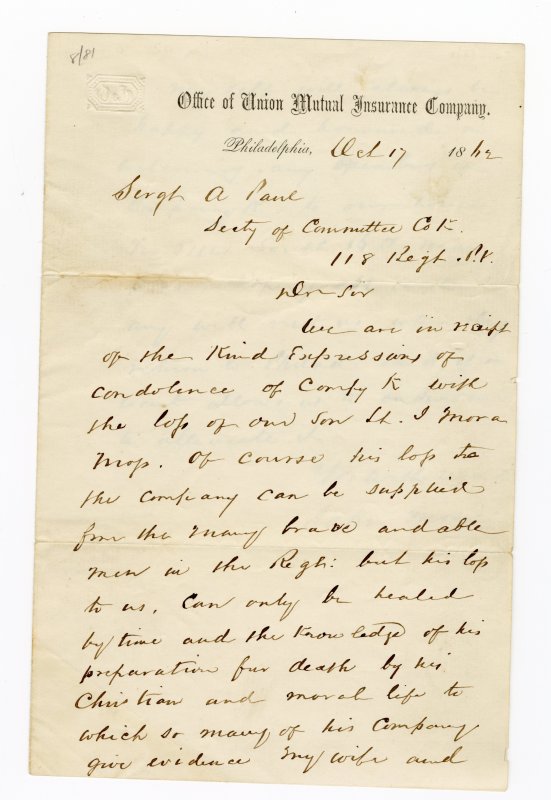 8/81
Office of Union Mutual Insurance Company.
Philadelphia, Oct 17 1862
Sergt A Paul
Secty of Committee Co K.
118 Regt. P.V.
Dr Sir
We are in receipt
of the Kind Expressions of
condolence of Compy K with
the loss of our Son Lt. J Mora
Moss. Of course his loss to
the company can be supplied
from the many brave and able
men in the Regt: but his loss
to us, Can only be healed
by time and the Knowledge of his
preparation for death by his
Christian and moral life to
which so many of his Company
give evidence My wife and